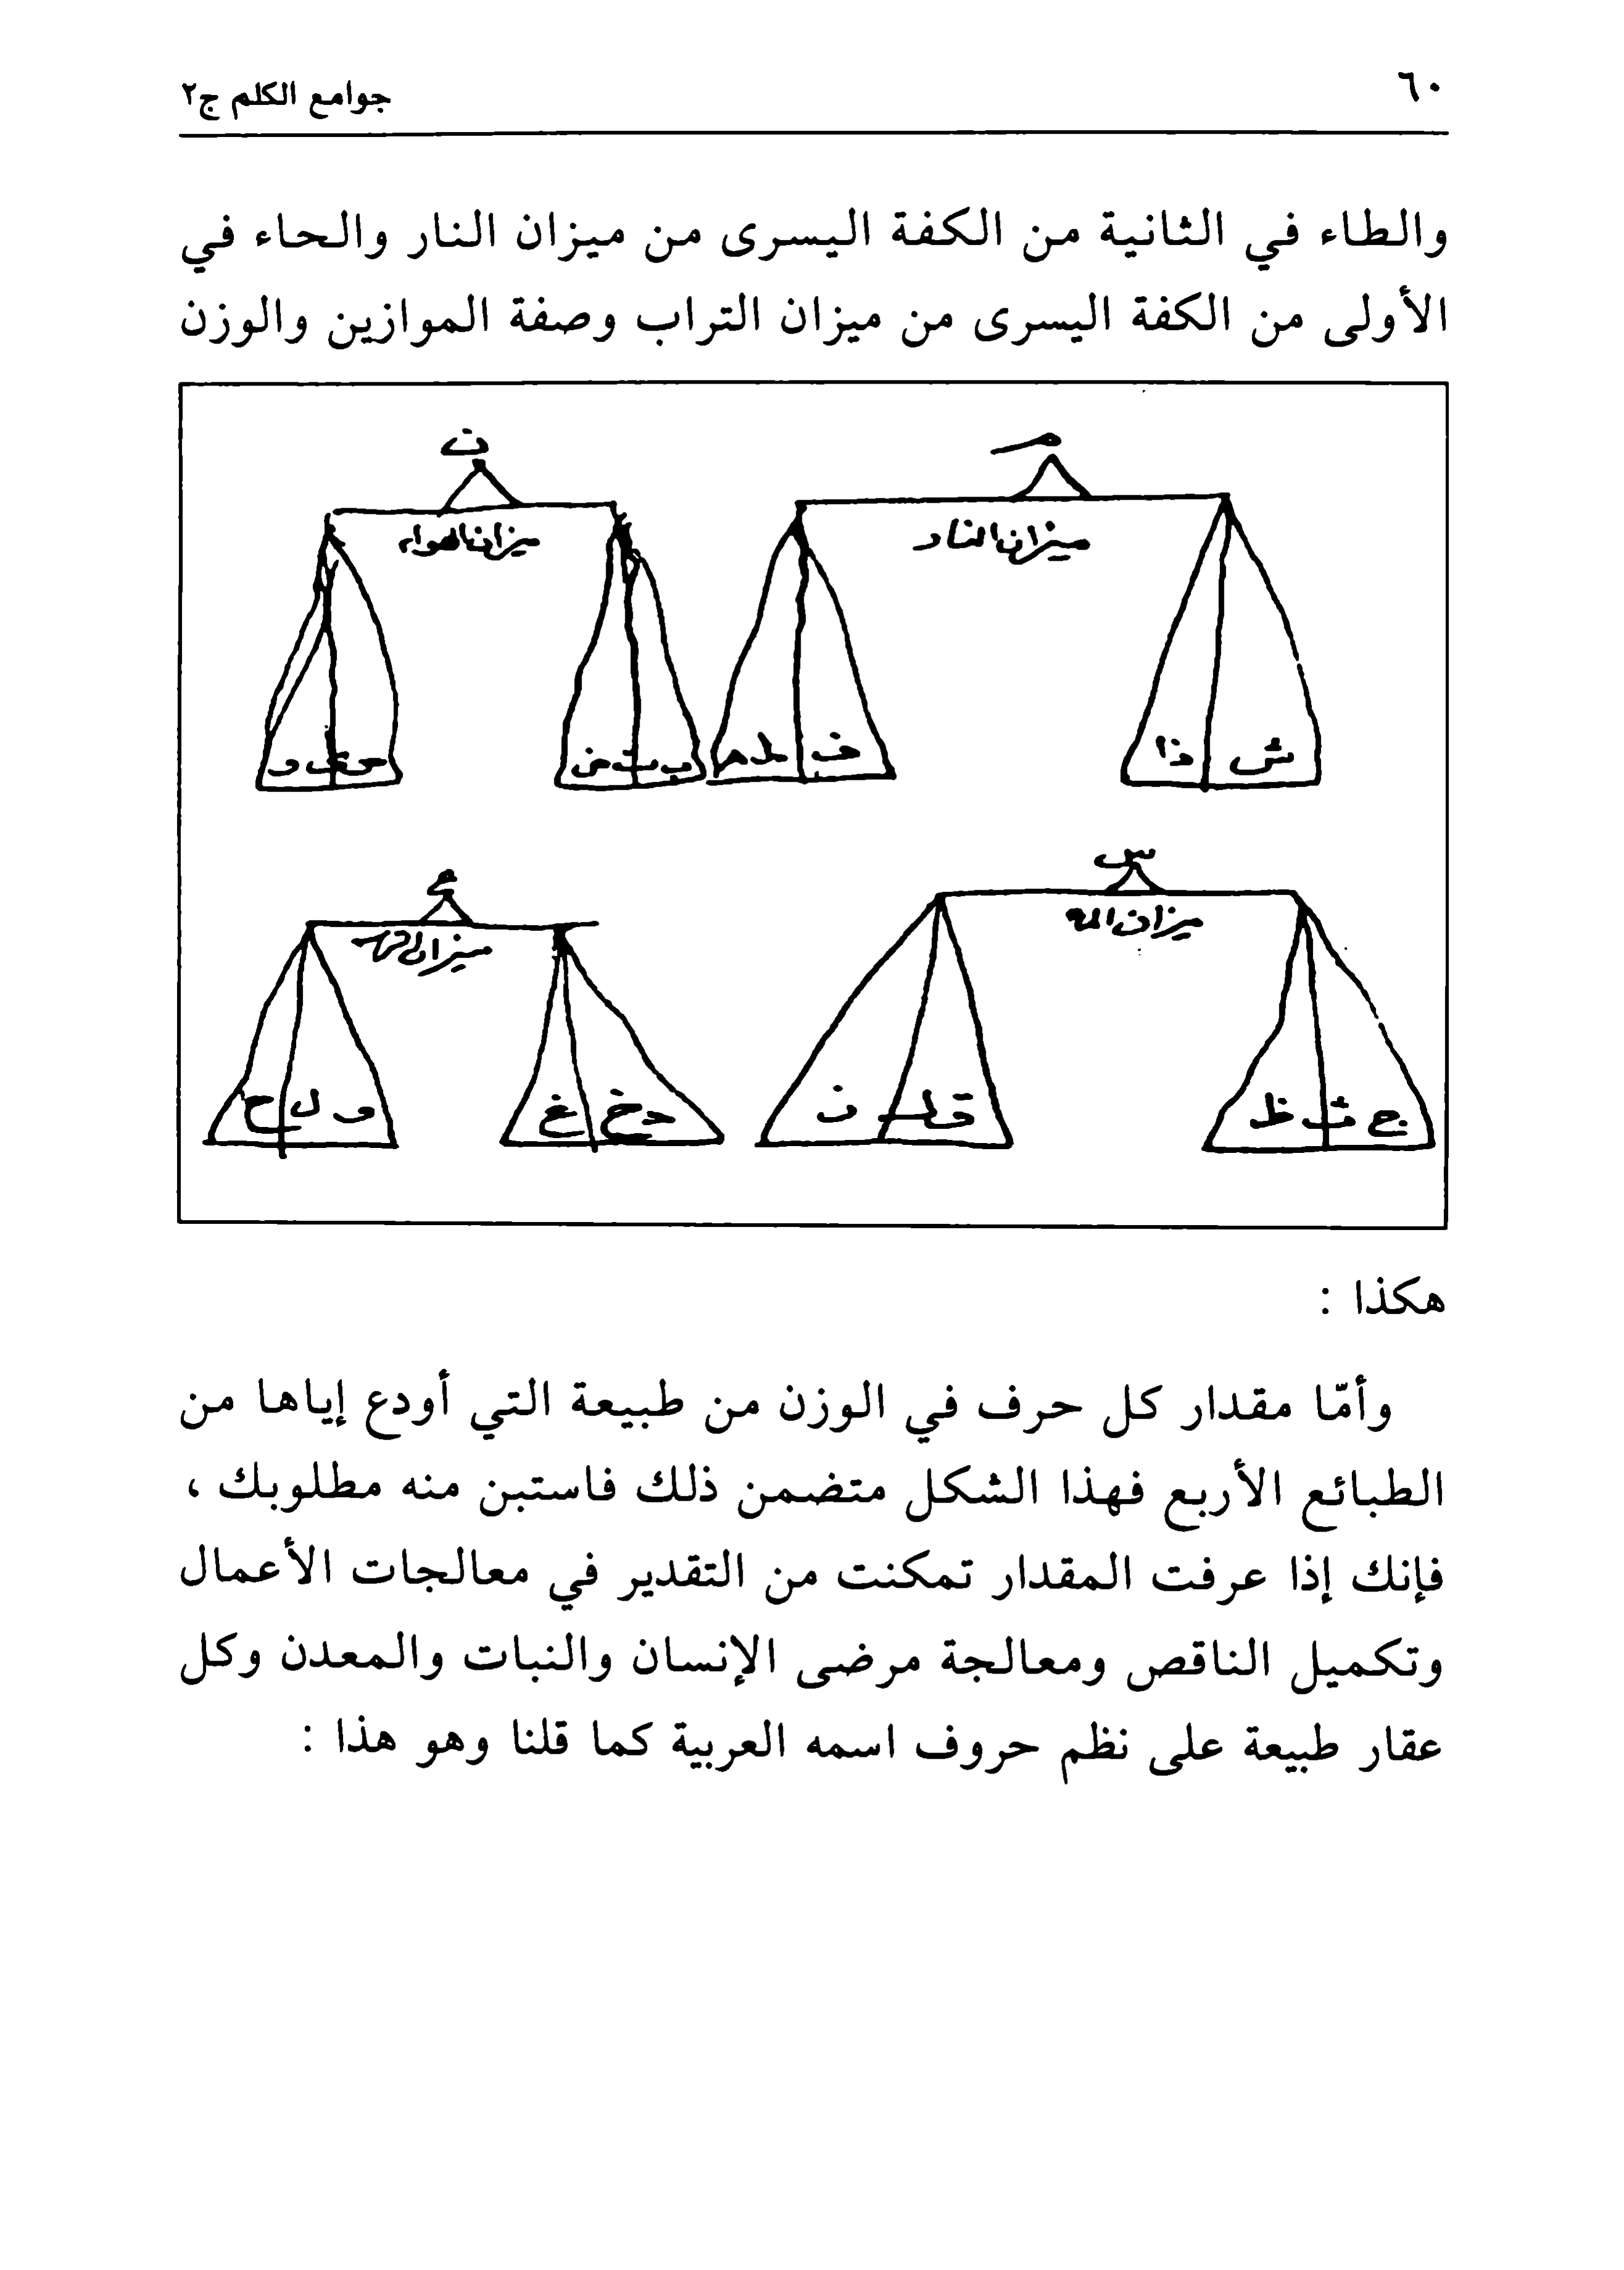 ٦٠
جوامع الكلم ج٢
والطاء في الثانية من الكفة اليسرى من ميزان النار والحاء في
الأولى من الكفة اليسرى من ميزان التراب وصفة الموازين والوزن
م
ن
ميزان النار
ميزان الهواء
ش ذا
ف
ب ت ض
س
ع
ميزان
ميزان
ج ث ظ
ن
د خ غ
ح
هكذا :
وأمّا مقدار كل حرف في الوزن من طبيعة التي أودع إياها من
الطبائع الأربع فهذا الشكل متضمن ذلك فاستبن منه مطلوبك ،
فإنك إذا عرفت المقدار تمكنت من التقدير في معالجات الأعمال
وتكميل الناقص ومعالجة مرضى الإنسان والنبات والمعدن وكل
عقار طبيعة على نظم حروف اسمه العربية كما قلنا وهو هذا :